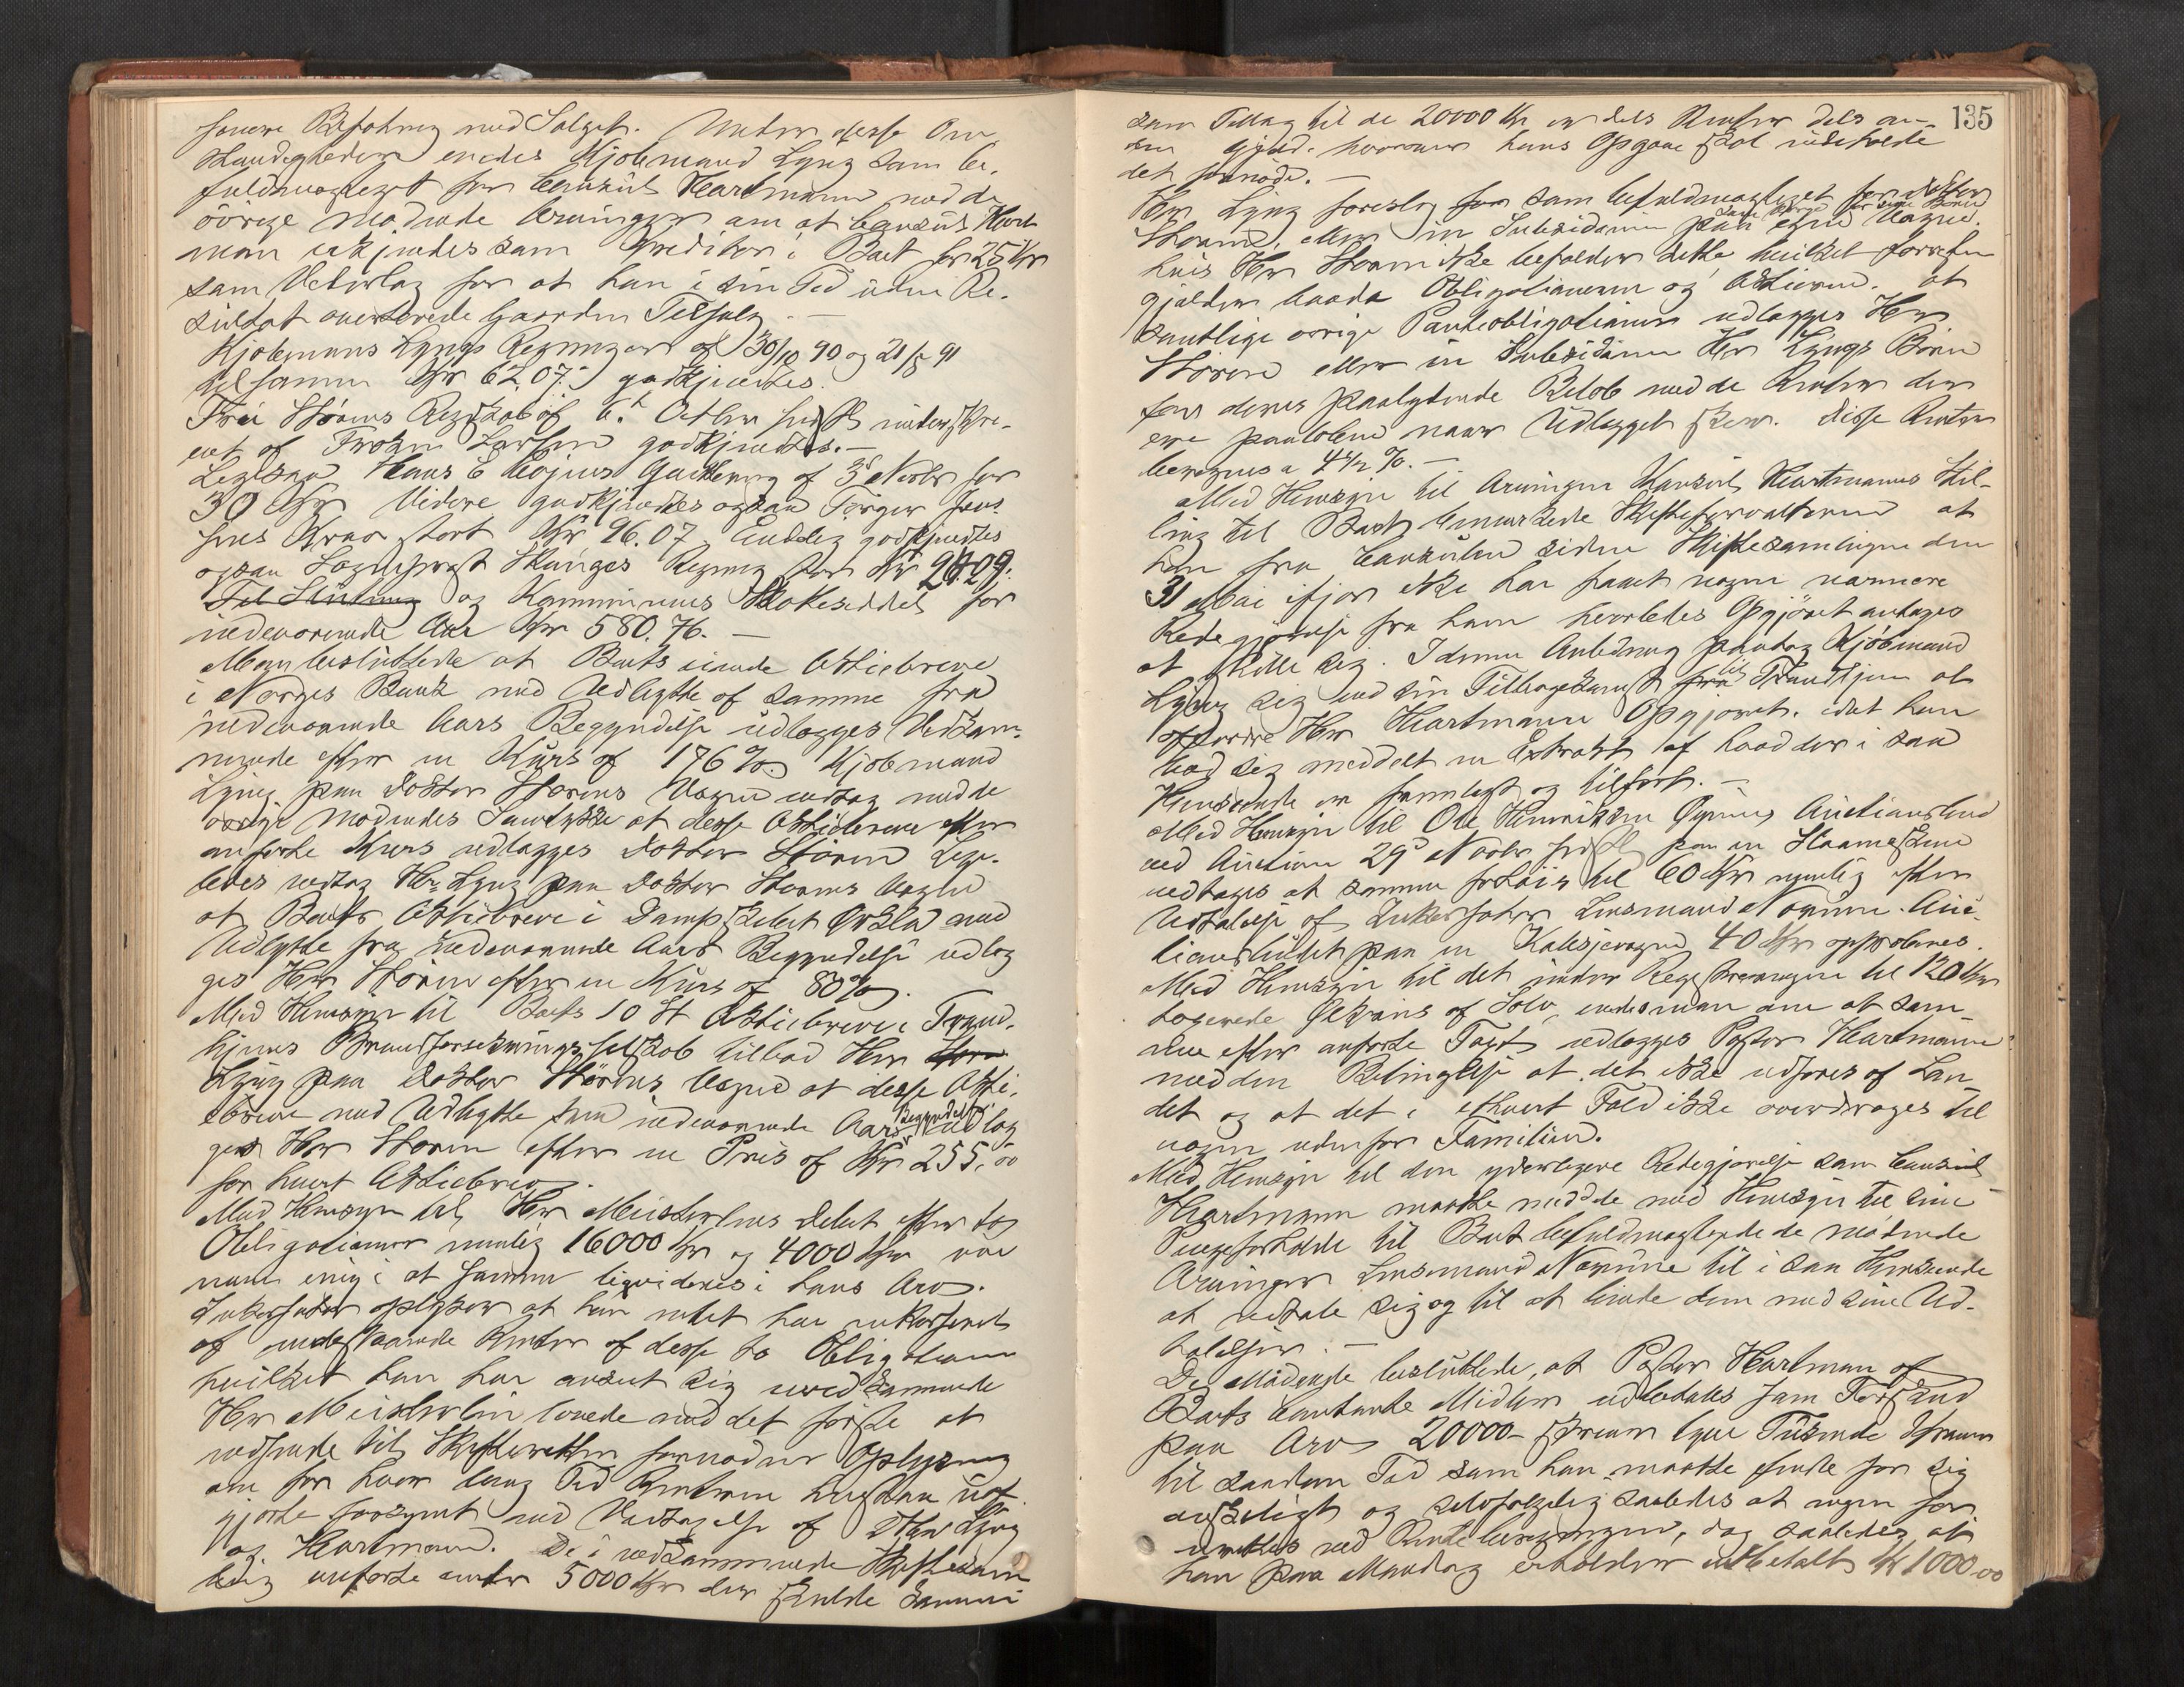 Befatning med Salget. Under disse Om
stændigheder enedes Kjøbmand Lyng som be-
fuldmægtiget for Consul Hartmann med de
øvrige mødende Arvinger om at Consul Hart
man udkjendes som Kreditor i Boet for 25 Kr
som Vederlag for at han i sin Tid uden Re-
sultat averterede Gaarden Tilsalg. —
Kjøbmans Lyngs Regninger af 30/10 90 og 21/5 91
tilsammen Kr 62.07. godkjendtes.
Fru Størens Regnskab af 6. Octbr sidstl underskre-
vet af Frøken Larsen godkjendtes. —
Hans C Quittering af 3d Novbr for
30 Kr Videre godkjendtes ogsaa Jørgen Jens
sens Krav stort Kr 96.07. Endelig godkjendtes
ogsaa Sogneprest Regning stor Kr
Til Slutning og Kommunens Skatteseddel for
indeværende Aar Kr 580.76. —
Man besluttede at Boets eiende Aktiebreve
i Norges Bank med Udbytte af samme fra
indeværende Aars Begyndelse udlægges Vedkom-
mende efter en Kurs af 176 %. Kjøbmand
Lyng paa Doktor Størens Vegne vedtog med de
øvrige Mødendes Samtykke at disse Aktiebreve efter
anførte Kurs udlægges Doktor Støren. Lige-
ledes vedtog Hr. Lyng paa Doktor Størens Vegne
at Boets Aktiebreve i Dampskibet Ørkla med
Udbytte fra indeværende Aars Begyndelse udlæg
ges Herr Støren efter en Kurs af 80 %.
Med Hensyn til Boets 10 St Aktiebreve i Trond-
hjems Brandforsikringsselskab tilbød Herr
Lyng paa Doktor Størens Vegne at disse Aktie
breve med Udbytte fra indeværende Aars Begyndelse udlæg
ges Herr Støren efter en Pris af Kr 255.00
for hvert Aktiebrev.
Med Hensyn til Herr Meisterlins Debet efter to
Obligationer nemlig 16000 Kr og 4000 Kr var
man enig i at samme likvideres i hans Arv.
Inkassator oplyser at han intet har inkasseret
af indestaaende Renter af disse to Obligationer
hvilket han har anseet sig uvedkommende
Herr Meisterlin lovede med det første at
indsende til Skifteretten fornøden Oplysning
om for hvor lang Tid Renterne henstaar uop
gjorte forsynet med Vedtagelse af DHrr Lyng
og Hartmann. De i vedkommende Skiftesam
ling anførte andre 5000 Kr der skulde komme
135
som Tillæg til de 20000 Kr er dels Renter dels an-
den Gjæld. hvorom hans Opgave skal indeholde
det fornødne. —
Herr Lyng foreslog som befuldmægtiget for Doktor
Støren, eller in Subsidium paa egne Vegne
hvis Herr Støren ikke befalder dette hvilket forresten
gjælder baade Obligationerne og Aktierne. at
samtlige øvrige Panteobligationer udlægges Herr
Støren eller in Subsidium Herr Lyngs Børn
for deres paalydende Beløb med de Renter der
ere paaløbne naar Udlægget skeer. Disse Renter
beregnes a 4 1/2 %. —
Med Hensyn til Arvingen Konsul Hartmanns Stil-
ling til Boet bemærkede Skifteforvalteren at
han fra Consulen siden Skiftesamlingen den
31 Mai ifjor ikke har faaet nogen nærmere
Redegjørelse fra ham hvorledes Opgjøret antages
at stille sig. I denne Anledning paatog Kjøbmand
Lyng sig ved sin Tilbagekomst til Trondhjem at
affordre Herr Hartmann Opgjøret. idet han
bad sig meddelt en Extrakt af hvad der i saa
Henseende er fremlagt og tilført. —
Med Hensyn til Ole Henriksen Auctionsbud
ved Auction 29d Novbr sidstl paa en
vedtages at samme forhøies til 60 Kr nemlig efter
Udtalelse af Inkassator Lensmand Auc-
tionsbudet paa en Kalesjevogn 40 Kr approberes.
Med Hensyn til det under Registreringen til 120 Kr
taxerede af Sølv, enedes man om at sam
me efter anførte Taxt udlægges Pastor Hartmann
med den Betingelse at det ikke udføres af Lan
det og at det i ethvert Fald ikke overdrages til
nogen udenfor Familien.
Med Hensyn til den yderligere Redegjørelse som Consul
Hartmann maatte meddele med Hensyn til sine
Pengeforholde til Boet befuldmægtigede de mødende
Arvinger Lensmand til i saa Henseende
at udtale sig og til at binde dem med sine Ud-
talelser. —
De Mødende besluttede, at Pastor Hartman af
Boets kontante Midler udbetales som Forskud
paa Arv 20000 — skriver tyve Tusinde Kroner
til saadan Tid som han maatte finde for sig
ønskeligt og selvfølgelig saaledes at ingen for
urettes ved Renteberegningen, dog saaledes at
han paa Mandag erholder udbetalt Kr 1000.00